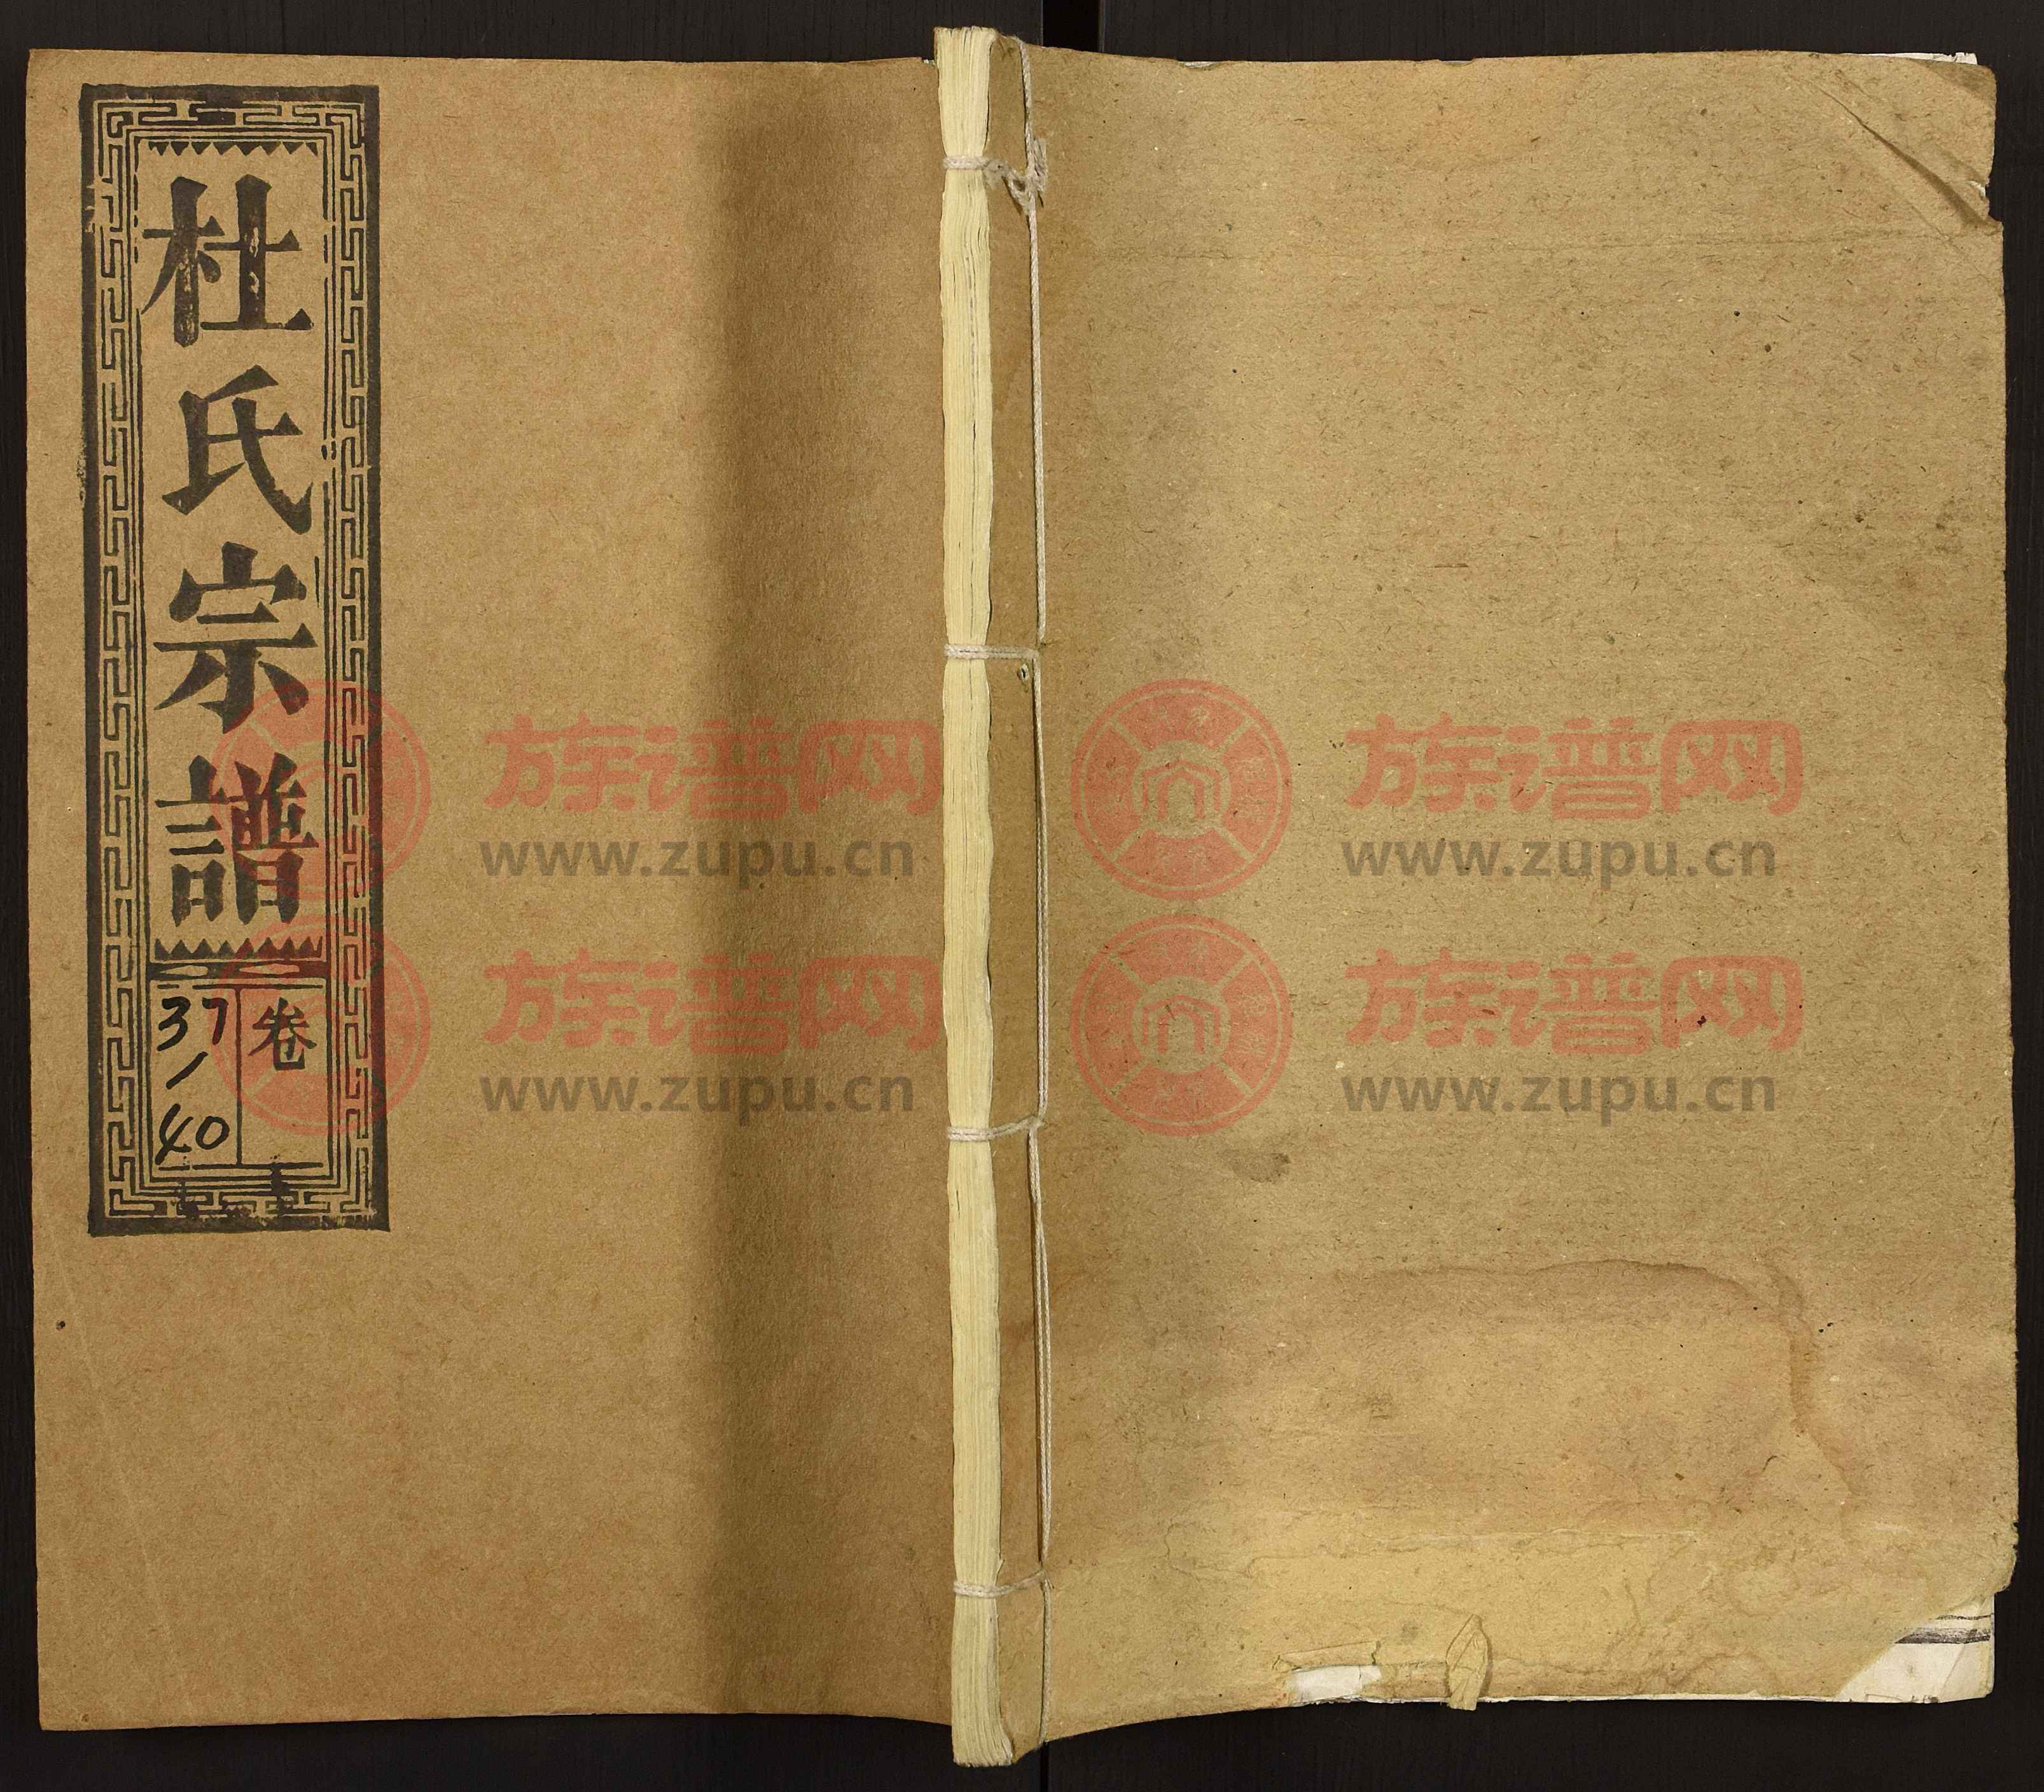 杜氏宗譜
卷
37/40
族谱网
www.zupu.cn
族谱网
www.zupu.cn
族谱网
www.zupu.cn
族谱网
www.zupu.cn